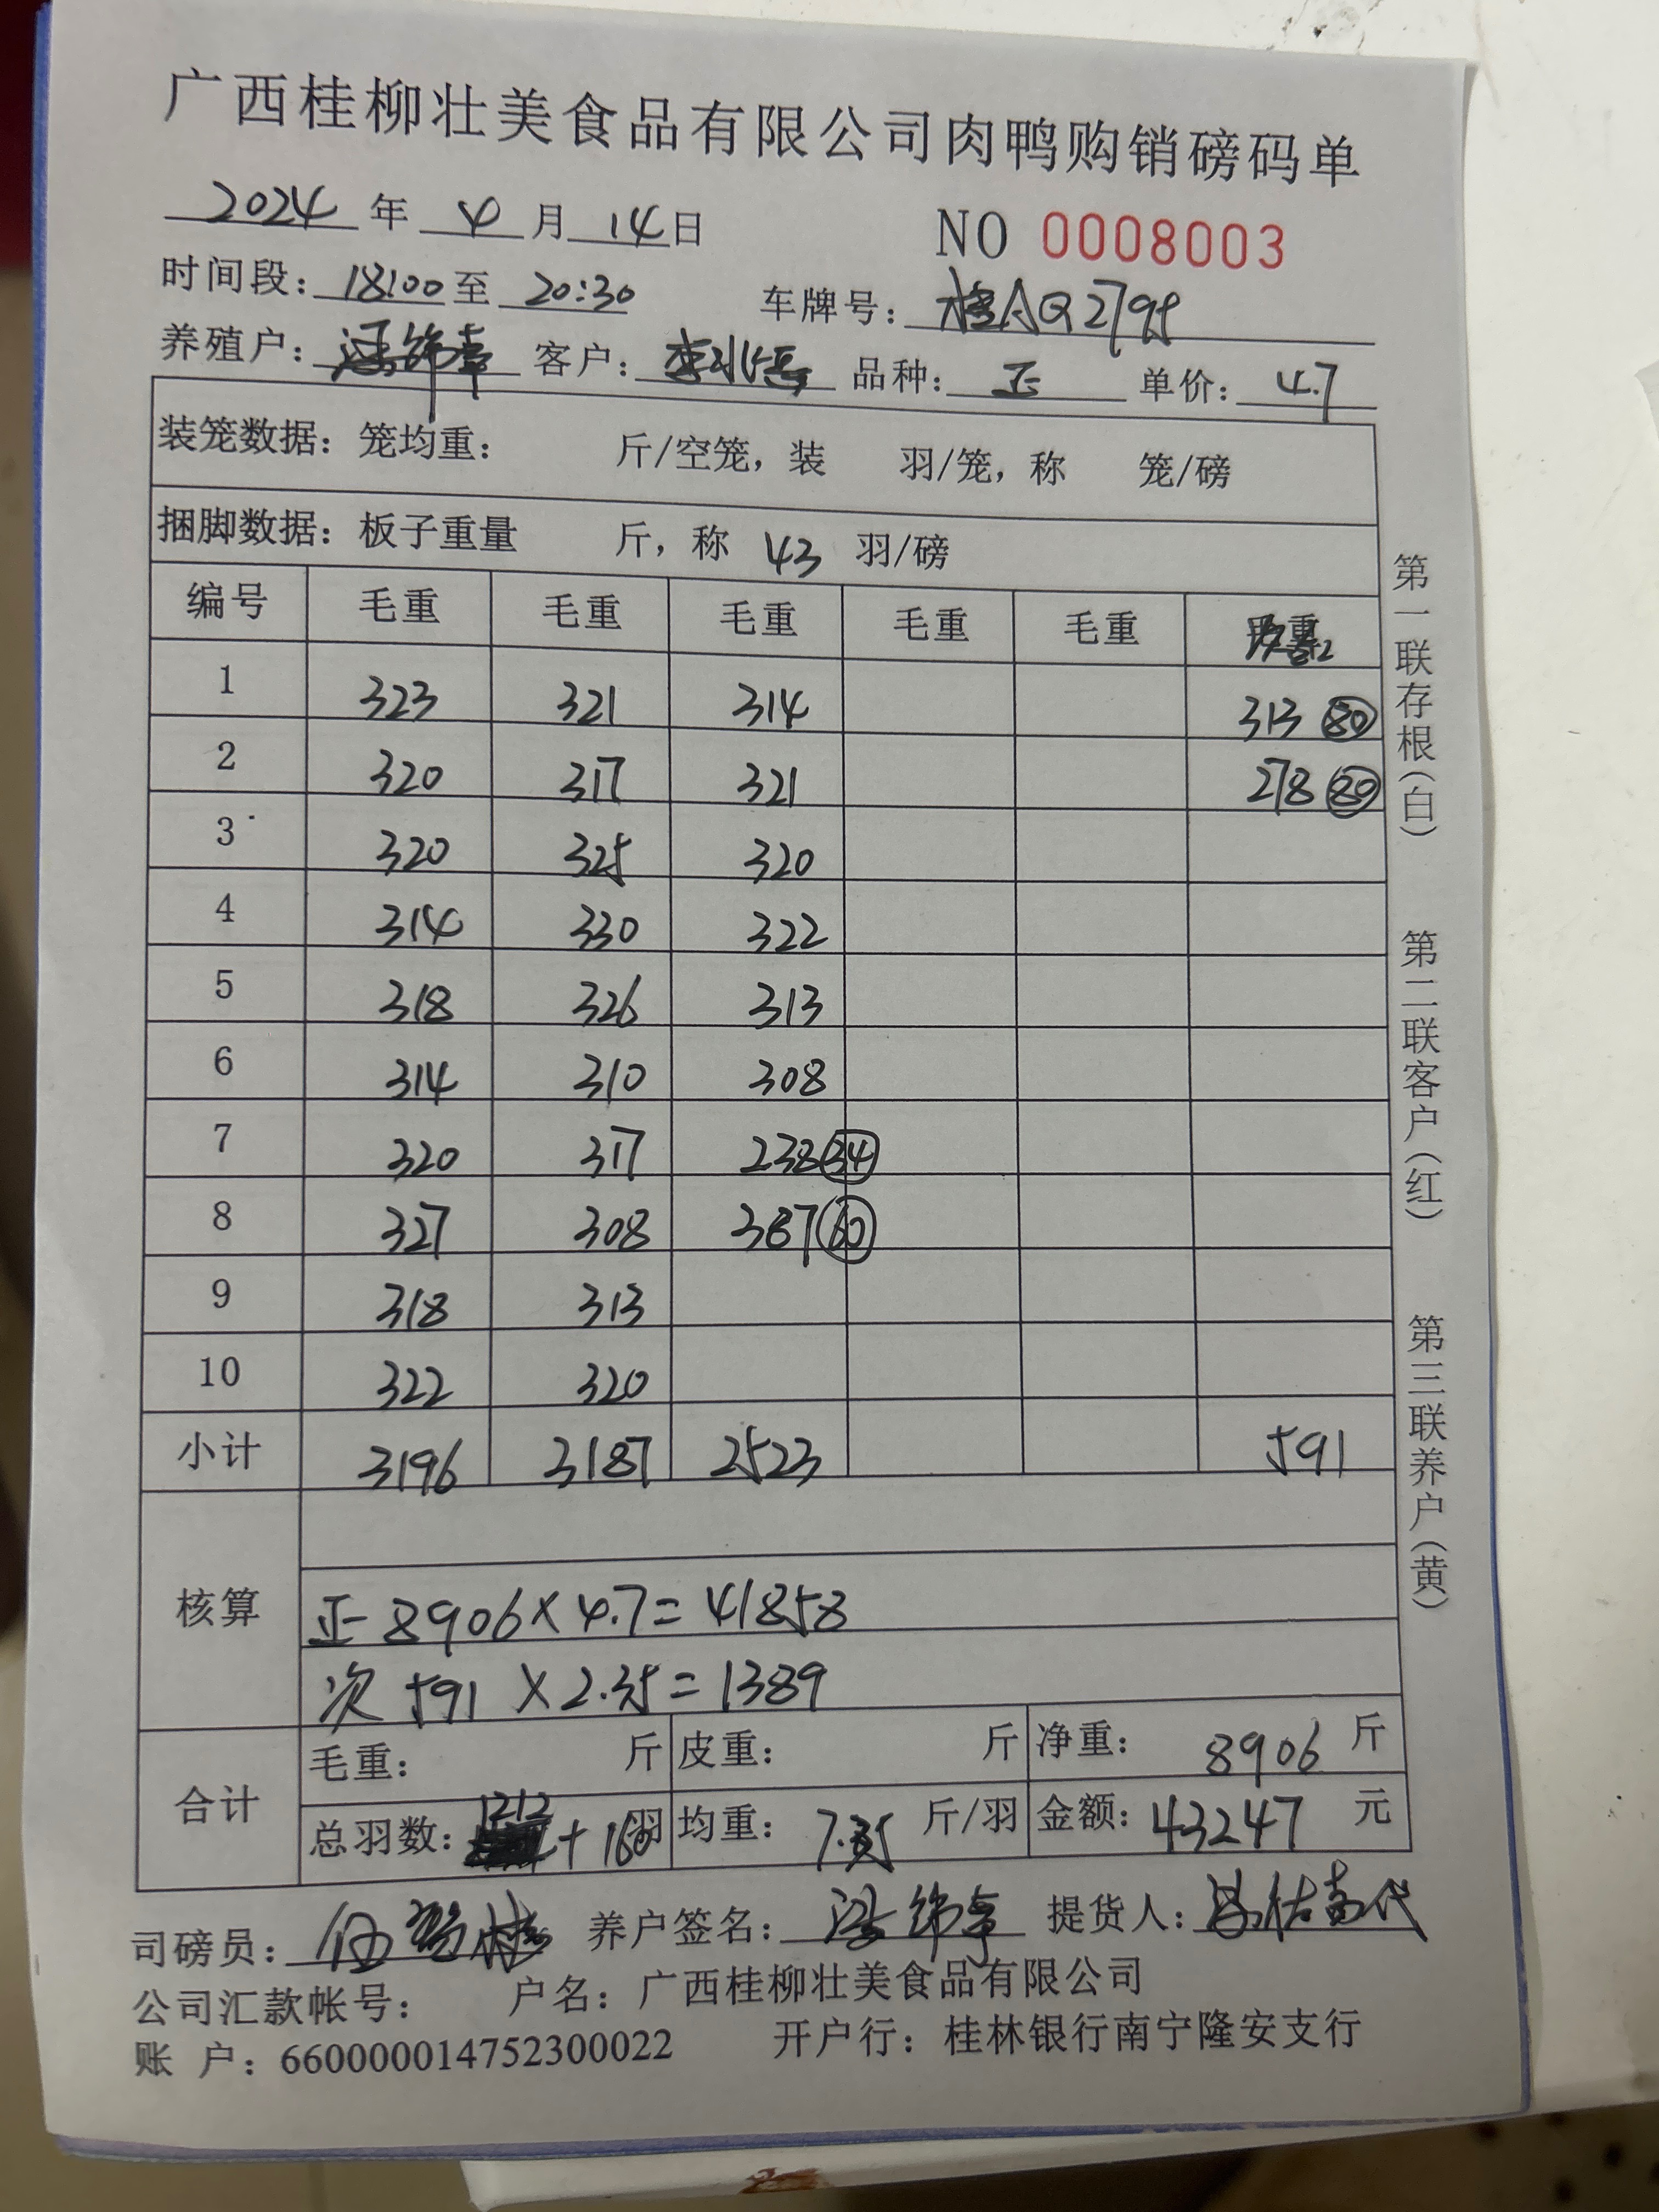 广西桂柳壮美食品有限公司肉鸭购销磅码单
2024 年 4 月 14 日 NO 0008003
时间段: 18:00 至 20:30 车牌号: 桂AQ2798
养殖户: 客户: 品种: 正 单价: 4.7
装笼数据: 笼均重: 斤/空笼, 装 羽/笼, 称 笼/磅
捆脚数据: 板子重量 斤, 称 43 羽/磅
编号 毛重 毛重 毛重 毛重 毛重
1 323 321 314 313 80
2 320 317 321 278 80
3 320 325 320
4 314 330 322
5 318 326 313
6 314 310 308
7 320 317 238 34
8 327 308 387 60
9 318 313
10 322 320
小计 3196 3187 2523 591
核算
正 8906×4.7=41858
次 591 ×2.35=1389
合计
毛重: 斤 皮重: 斤 净重: 8906 斤
总羽数: 1212 +160 羽 均重: 7.35 斤/羽 金额: 43247 元
司磅员: 养户签名: 提货人:
公司汇款帐号: 户名: 广西桂柳壮美食品有限公司
账 户: 660000014752300022 开户行: 桂林银行南宁隆安支行
第一联存根(白) 第二联客户(红) 第三联养户(黄)